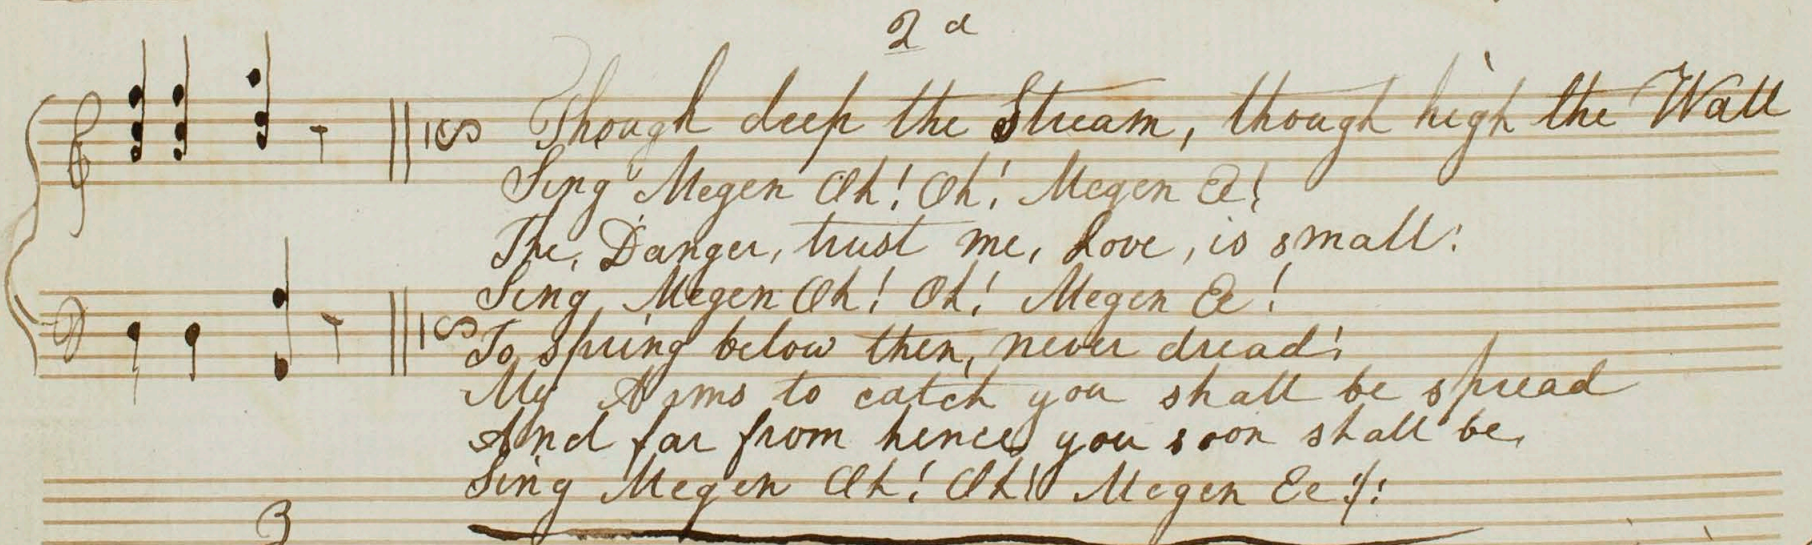 2d
Though deep the Stream, though high the Wall
Sing Megen Oh! Oh! Megen Ee!
The, Danger, trust me, Love, is small:
Sing Megen Oh! Oh! Megen Ee!
To spring below then, never dread!
My Arms to catch you shall be spread
And far from hence you soon shall be,
Sing Megen Oh! Oh! Megen Ee!
3